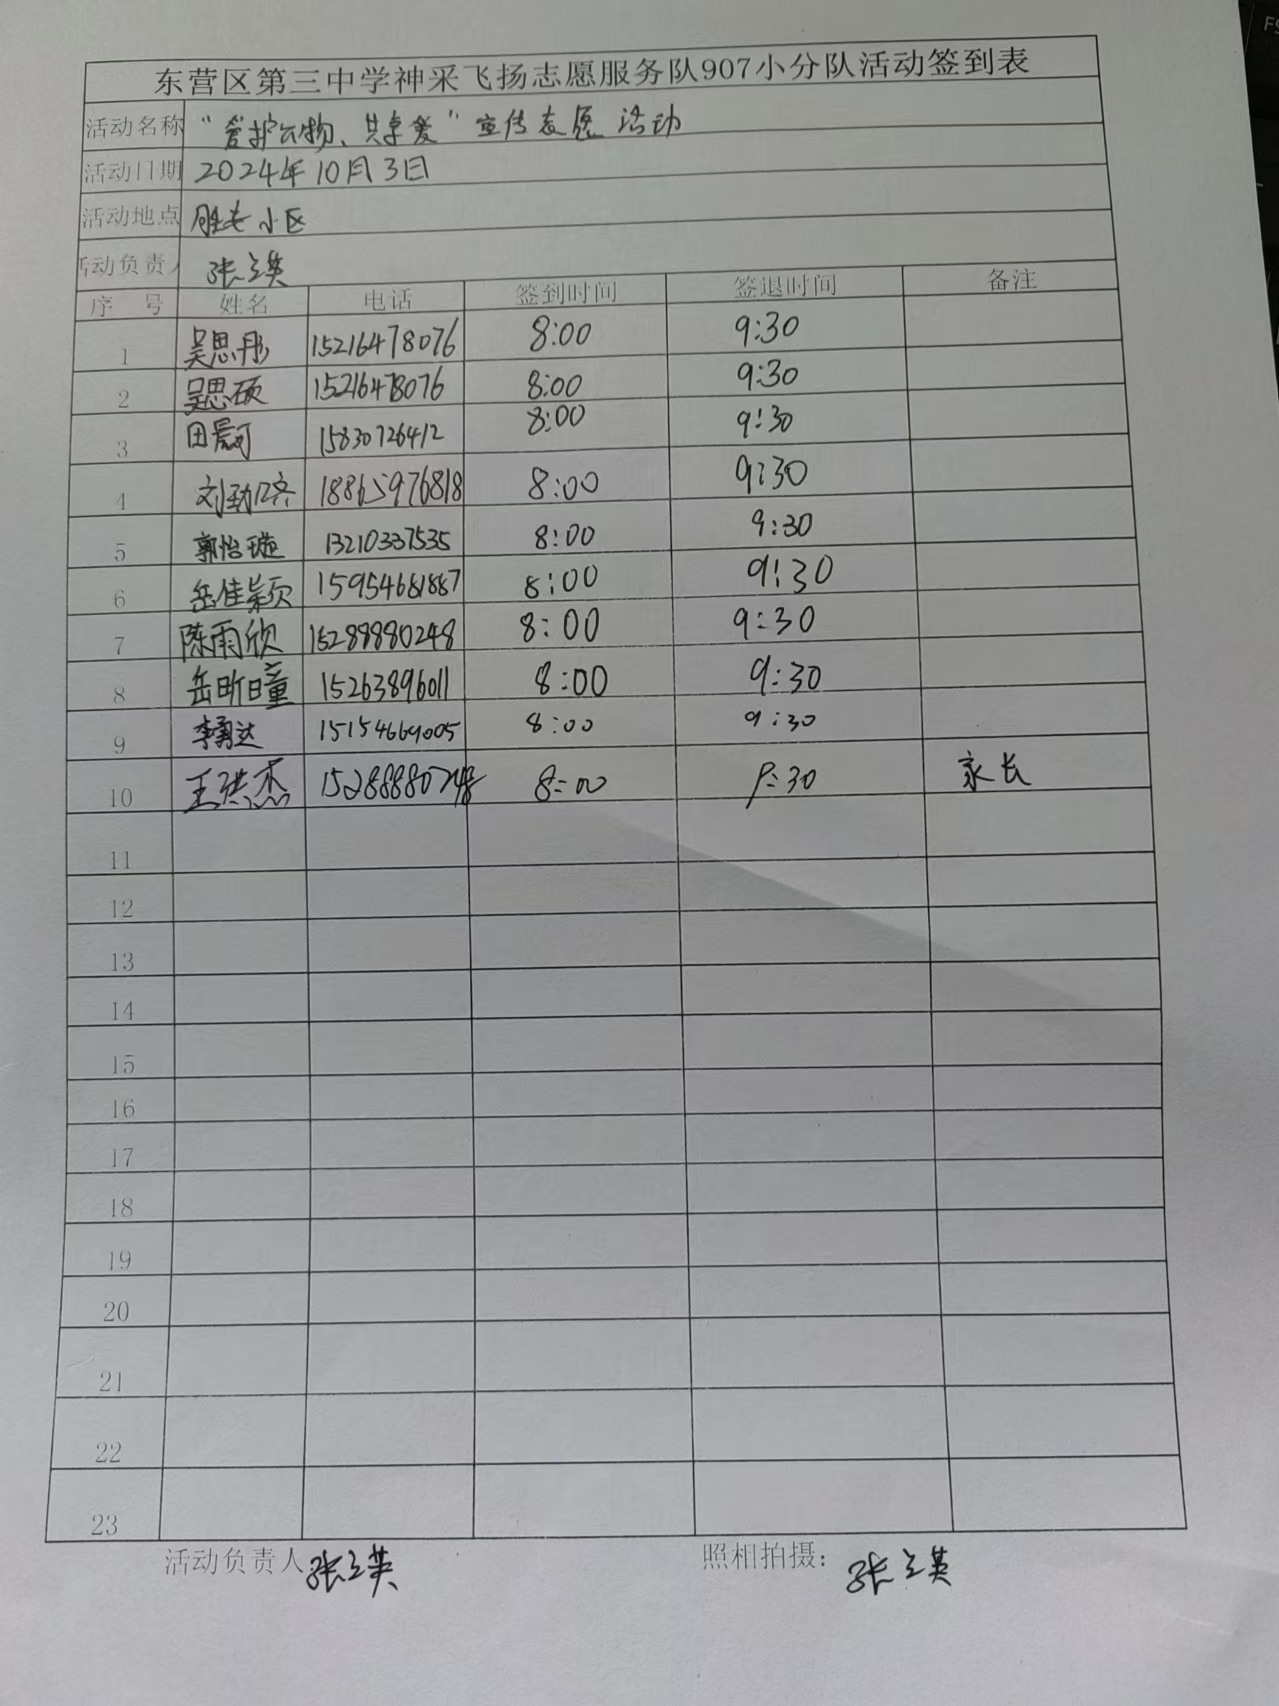 东营区第三中学神采飞扬志愿服务队907小分队活动签到表
活动名称 "爱护公物、共享爱"宣传志愿活动
活动日期 2024年10月3日
活动地点 胜未小区
活动负责人 张立英
序 号 姓名 电话 签到时间 签退时间 备注
1 吴思彤 15216478076 8:00 9:30
2 吴思硕 15216478076 8:00 9:30
3 田晨可 15830726412 8:00 9:30
4 刘劲 18865976818 8:00 9:30
5 郭怡璇 13210337535 8:00 9:30
6 岳佳颖 15954681887 8:00 9:30
7 陈雨欣 15289880248 8:00 9:30
8 岳昕曈 15263896011 8:00 9:30
9 李勇达 15154669005 8:00 9:30
10 王洪杰 8:00 9:30 家长
11
12
13
14
15
16
17
18
19
20
21
22
23
活动负责人 张立英 照相拍摄: 张立英